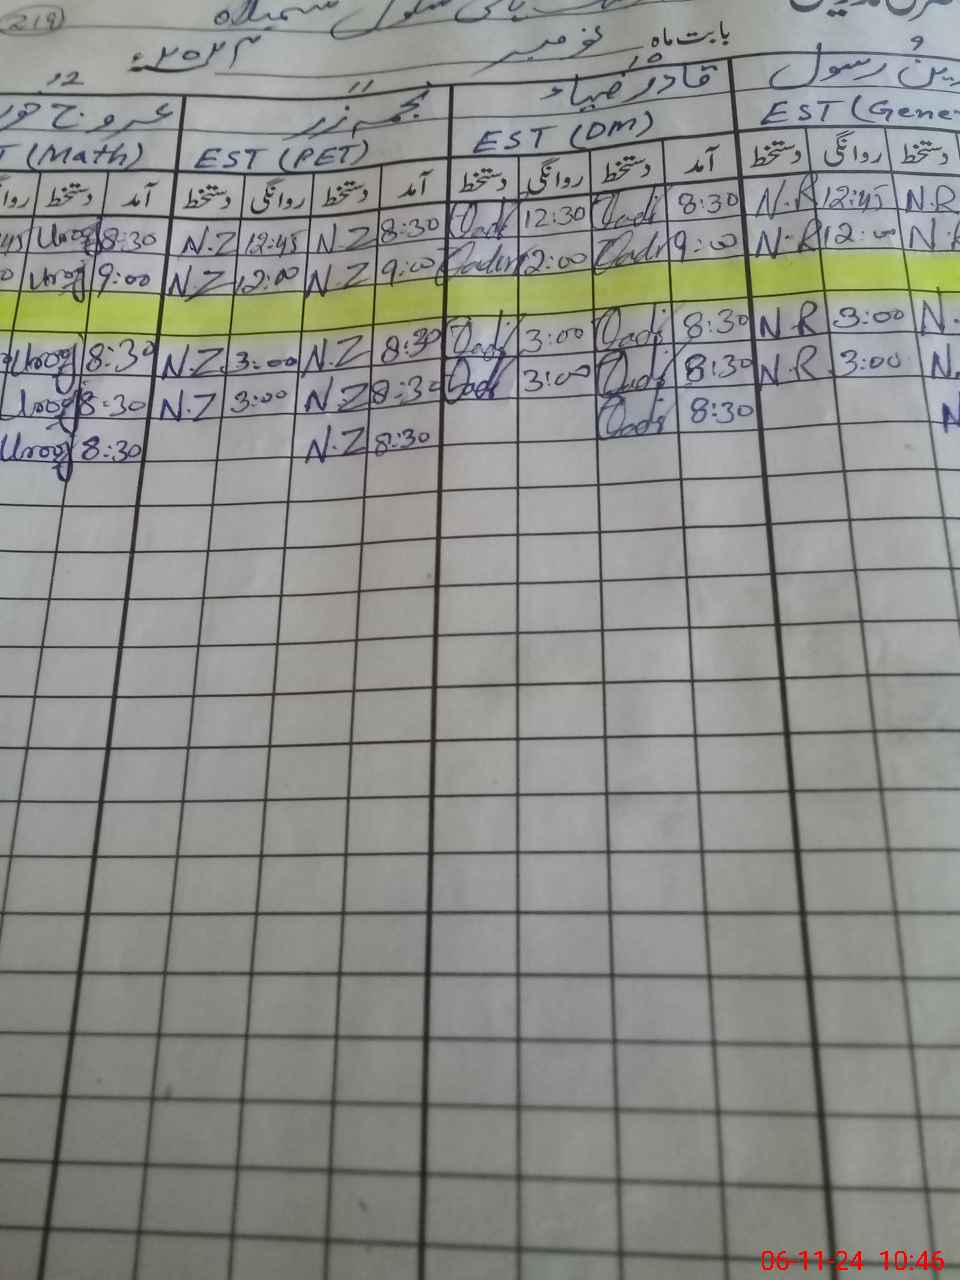 219
بابت ماہ نومبر ۲۰۲۴ء
12 11 10 9
عروج قادر ضیاء نجمہ زر رسول
T (Math) EST (PET) EST (DM) EST (Gene
روا دستخط آمد دستخط روانگی دستخط آمد دستخط روانگی دستخط آمد دستخط روانگی دستخط
45 Urooj 8:30 N.Z 12:45 N.Z 8:30 Qadir 12:30 Qadir 8:30 N.R 12:45 N.R
0 Urooj 9:00 N.Z 12:00 N.Z 9:00 Qadir 12:00 Qadir 9:00 N.R 12:00 N.R
Urooj 8:30 N.Z 3:00 N.Z 8:30 Qadir 3:00 Qadir 8:30 N.R 3:00 N.
Urooj 8:30 N.Z 3:00 N.Z 8:30 Qadir 3:00 Qadir 8:30 N.R 3:00 N.
Urooj 8:30 N.Z 8:30 Qadir 8:30 N
06-11-24 10:46